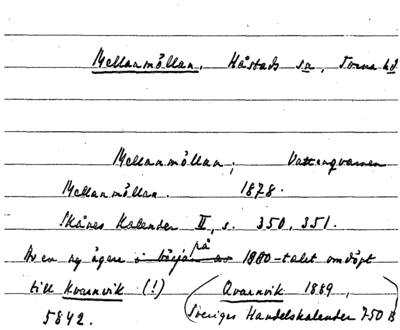 Mellanmöllan, Håstads sn, Torna hd
Mellanmöllan; Vattenqvarnen
Mellanmöllan. 1878.
Skånes Kalender II, s. 350, 351.
Av en ny ägare i början av på 1880-talet omdöpt
till Kvarnvik (!) (Qvarnvik 1889,
5842. Sveriges Handelskalender 750 B)